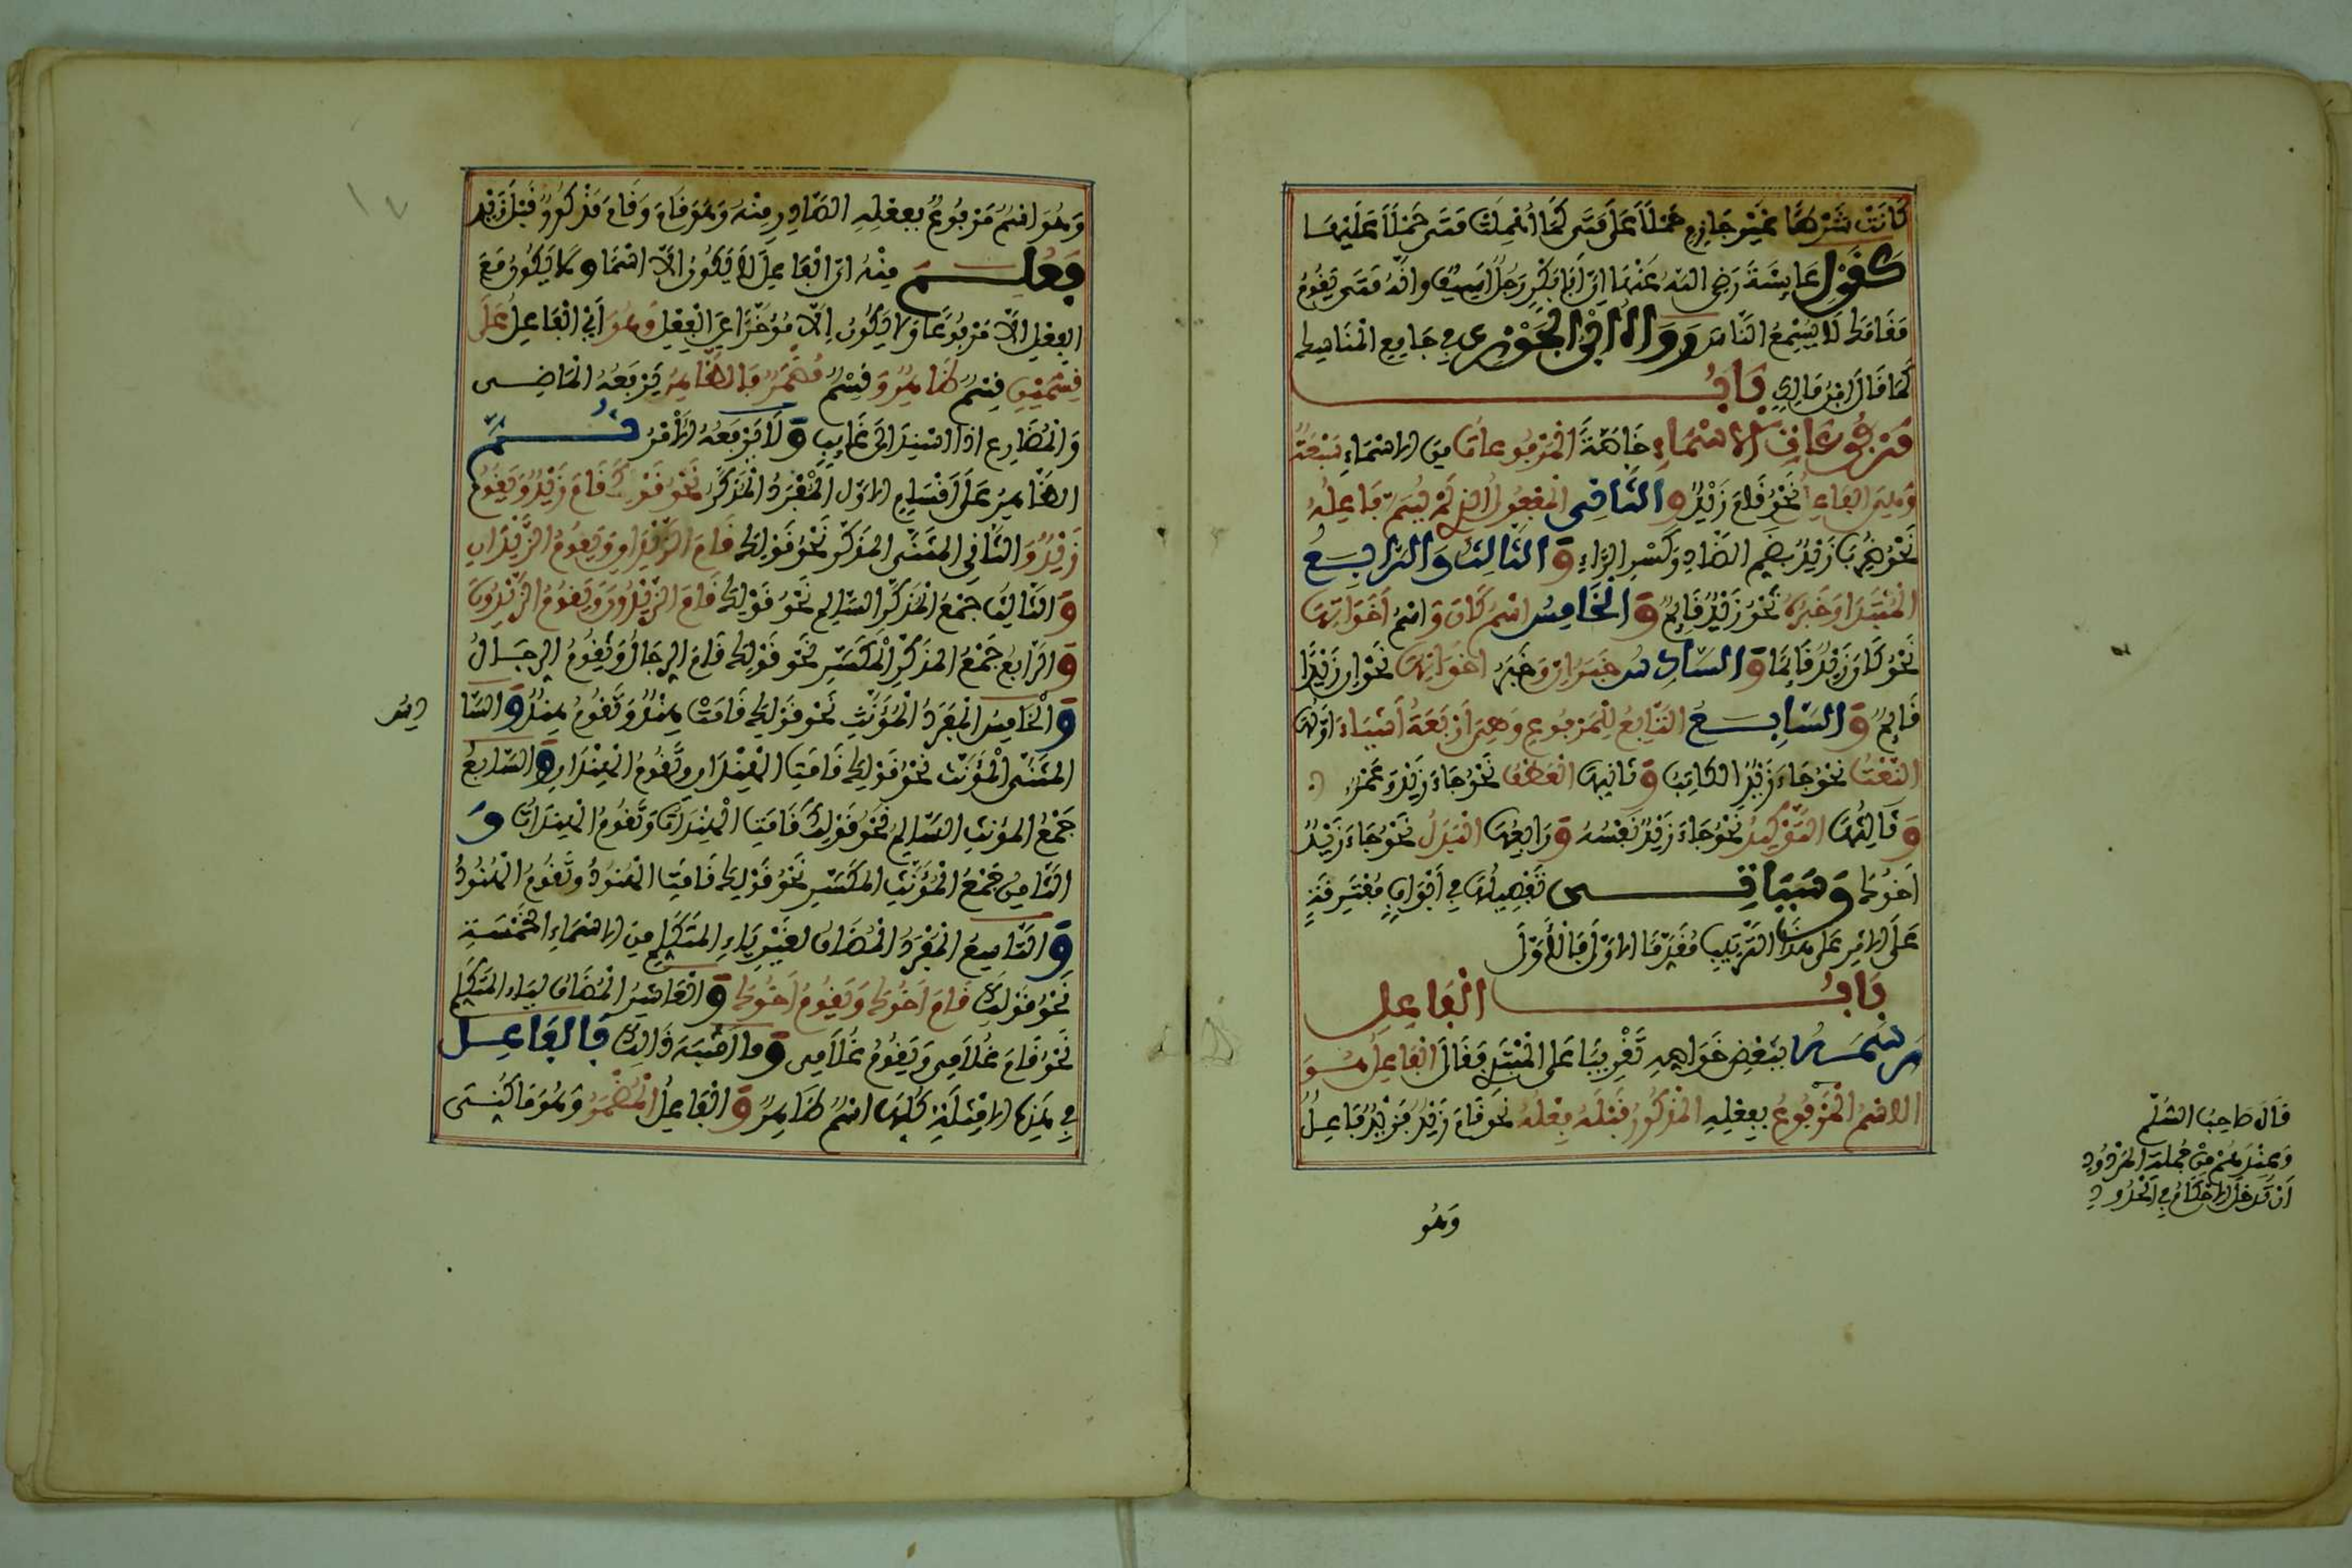 كَانَتْ شَرْطًا غَيْرَ جَازِمٍ حَمْلًا عَلَى مَتَى كَمَا أُهْمِلَتْ مَتَى حَمْلًا عَلَيْهَا
كَقَوْلِ عَايِشَةَ رَضِيَ اللهُ عَنْهَا اِنَّ أَبَا بَكْرٍ رَجُلٌ اَسِيفٌ وانَّهُ مَتَى يَقُومُ
مَقَامَكَ لَا يُسْمِعُ النَّاسَ رَوَاهُ ابْنُ الْجَوْزِي فِي جَامِعِ الْمَسَانِيدِ
كَمَا قَالَ ابْنُ مَالِكٍ بَابُ
مَرْفُوعَاتِ الاسْمَاءِ خَاصَّةً الْمَرْفُوعاتُ مِنَ الاسْمَاءِ سَبْعَةٌ
وَهِيَ الفَاعِلُ نَحْوُ قَامَ زَيْدٌ وَالثَّانِي الْمَفْعُولُ الذِي لَمْ يُسَمَّ فَاعِلُهُ
نَحْوُ ضُرِبَ زَيْدٌ بِضَمِّ الضَّادِ وَكَسْرِ الرَّاءِ وَالثَّالِثُ وَالرَّابِعُ
الْمُبْتَدَا وَخَبَرُهُ نَحْوُ زَيْدٌ قَايِمٌ وَالْخَامِسُ اسْمُ كَانَ وَاسْمُ أَخَوَاتِهَا
نَحْوُ كَانَ زَيْدٌ قَائِمًا وَالسَّادِسُ خَبَرُ اِنَّ وَخَبَرُ اخَوَاتِهَا نَحْوُ اِنَّ زَيْدًا
قَايِمٌ وَالسَّابِعُ التَّابِعُ لِلْمَرْفُوعِ وَهِيَ أَرْبَعَةُ أَشْيَاءَ اوَّلُهَا
النَّعْتُ نَحْوُ جَاءَ زَيْدٌ الكَاتِبُ وَثَانِيهَا الْعَطْفُ نَحْوُ جَاءَ زَيْدٌ وَعَمْرٌو
وَثَالِثُهَا التَّوْكِيدُ نَحْوُ جَاءَ زَيْدٌ نَفْسُهُ وَرَابِعُهَا الْبَدَلُ نَحْوُ جَاءَ زَيْدٌ
اَخُوكَ وَسَيَاتِي تَفْصِيلُهَا فِي أَبْوَابٍ مُفْتَرِقَةٍ
عَلَى الاثَرِ عَلَى هَذَا التَّرْتِيبِ مُقَدِّمًا الاوَّلَ فَالْأَوَّلَ
بَابُ الْفَاعِلِ
رَسَمَهُ بِبَعْضِ خَوَاصِّهِ تَقْرِيبًا عَلَى الْمُبْتَدِي فَقَالَ الْفَاعِلُ هُوَ
الاسْمُ الْمَرْفُوعُ بِفِعْلِهِ الْمَذْكُورُ قَبْلَهُ فِعْلُهُ نَحْوُ قَامَ زَيْدٌ فَزَيْدٌ فَاعِلٌ
وَهُوَ
قَالَ صَاحِبُ السُّلَّمِ
وَعِنْدَهُمْ مِنْ جُمْلَةِ الْمَرْدُودِ
أَنْ تُدْخَلَ الاحْكَامُ فِي الْحُدُودِ
وَهُوَ اسْمٌ مَرْفُوعٌ بِفِعْلِهِ الصَّادِرِ مِنْهُ وَهُوَ قَامَ وَقَامَ مَذْكُورٌ قَبْلَ زَيْدٍ
فَعُلِمَ مِنْهُ انَّ الْفَاعِلَ لَا يَكُونُ الَّا اسْمًا وَلَا يَكُونُ مَعَ
الفِعْلِ الَّا مَرْفُوعًا وَلَا يَكُونُ اِلَّا مُؤَخَّرًا عَنِ الْفِعْلِ وَهُوَ أَيْ الْفَاعِلُ عَلَى
قِسْمَيْنِ قِسْمٌ ظَاهِرٌ وَقِسْمٌ مُضْمَرٌ فَالظَّاهِرُ يَرْفَعُهُ الْمَاضِي
وَالْمُضَارِعُ اذَا اسْنِدَ الَى غَايِبٍ وَلَا يَرْفَعُهُ الْأَمْرُ ثُمَّ
الظَّاهِرُ عَلَى أَقْسَامٍ الاوَّلُ الْمُفْرَدُ الْمُذَكَّرُ نَحْوُ قَوْلِكَ قَامَ زَيْدٌ وَيَقُومُ
زَيْدٌ وَالثَّانِي الْمُثَنَّى الْمُذَكَّرُ نَحْوُ قَوْلِكَ قَامَ الزَّيْدَانِ وَيَقُومُ الزَّيْدَانِ
وَالثَّالِثُ جَمْعُ الْمُذَكَّرِ السَّالِمُ نَحْوُ قَوْلِكَ قَامَ الزَّيْدُونَ وَيَقُومُ الزَّيْدُونَ
وَالرَّابِعُ جَمْعُ الْمُذَكَّرِ الْمُكَسَّرِ نَحْوُ قَوْلِكَ قَامَ الرِّجَالُ وَيَقُومُ الرِّجَالُ
وَالْخَامِسُ الْمُفْرَدُ الْمُؤَنَّثُ نَحْوُ قَوْلِكَ قَامَتْ هِنْدٌ وَتَقُومُ هِنْدٌ وَالسَّا
دِسُ
الْمُثَنَّى الْمُؤَنَّثُ نَحْوُ قَوْلِكَ قَامَتِ الْهِنْدَانِ وَتَقُومُ الْهِنْدَانِ وَالسَّابِعُ
جَمْعُ الْمُؤَنَّثِ السَّالِمُ نَحْوُ قَوْلِكَ قَامَتِ الْهِنْدَاتُ وَتَقُومُ الْهِنْدَاتُ وَ
الثَّامِنُ جَمْعُ الْمُؤَنَّثِ الْمُكَسَّرِ نَحْوُ قَوْلِكَ قَامَتِ الْهُنُودُ وَتَقُومُ الْهُنُودُ
وَالتَّاسِعُ الْمُفْرَدُ الْمُضَافُ لِغَيْرِ يَاءِ الْمُتَكَلِّمِ مِنَ الاسْمَاءِ الْخَمْسَةِ
نَحْوُ قَوْلِكَ قَامَ اَخُوكَ وَيَقُومُ اَخُوكَ وَالْعَاشِرُ الْمُضَافُ لِيَاءِ الْمُتَكَلِّمِ
نَحْوُ قَامَ غُلَامِي وَيَقُومُ غُلَامِي وَمَا اَشْبَهَ ذَالِكَ فَالْفَاعِلُ
فِي هَذِهِ الامْثِلَةِ كُلِّهَا اسْمٌ ظَاهِرٌ وَالْفَاعِلُ الْمُضْمَرُ وَهُوَ مَا كُنِيَ
١٧